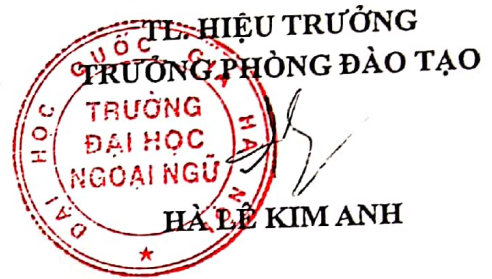 TL. HIỆU TRƯỞNG
TRƯỞNG PHÒNG ĐÀO TẠO
ĐẠI HỌC QUỐC GIA HÀ NỘI
TRƯỜNG
ĐẠI HỌC
NGOẠI NGỮ
HÀ LÊ KIM ANH